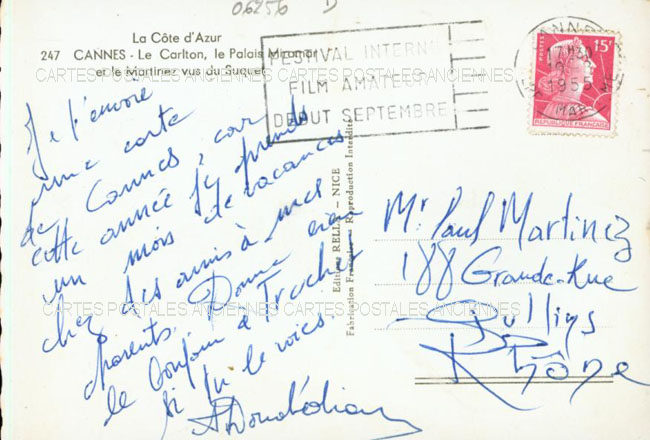 06256 D
La Côte d'Azur
247 CANNES - Le Carlton, le Palais Miramar
et le Martinez vus du Suquet
CARTES POSTALES ANCIENNES CARTES POSTALES ANCIENNES CARTES POSTALES ANCIENNES
FESTIVAL INTERN
FILM AMATEUR
DEBUT SEPTEMBRE
CANNES
17H30
1955
MAR
POSTES
15F
REPUBLIQUE FRANÇAISE
Je t'envoie
une carte
de Cannes, car
cette année j'y prends
un mois de vacances
chez des amis à mes
parents. Donne bien
le bonjour à Trocher
si tu le vois.
ADoudédian
Editions RELLA - NICE
Fabrication Française - Reproduction Interdite
Mr Paul Martinez
188 Grande-Rue
Oullins
Rhône
CARTES POSTALES ANCIENNES CARTES POSTALES ANCIENNES CARTES POSTALES ANCIENNES